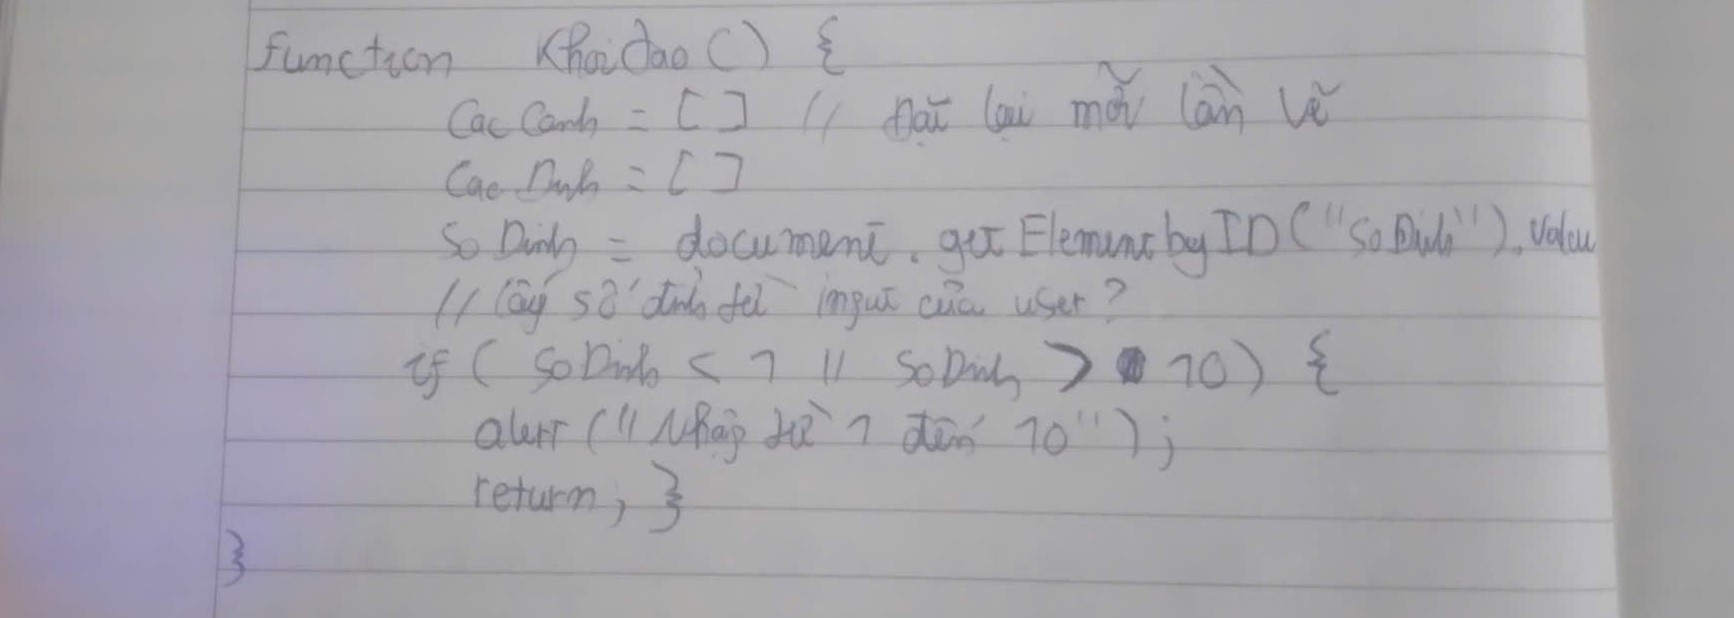 function Khoi tao () {
CacCanh = [ ] // Đặt lại mỗi lần vẽ
CacDinh = [ ]
SoDinh = document.getElementbyID("SoDinh").value
// lấy số đỉnh từ input của user?
if ( SoDinh < 1 || SoDinh > 10) {
alert ("Nhập từ 1 đến 10");
return; }
}